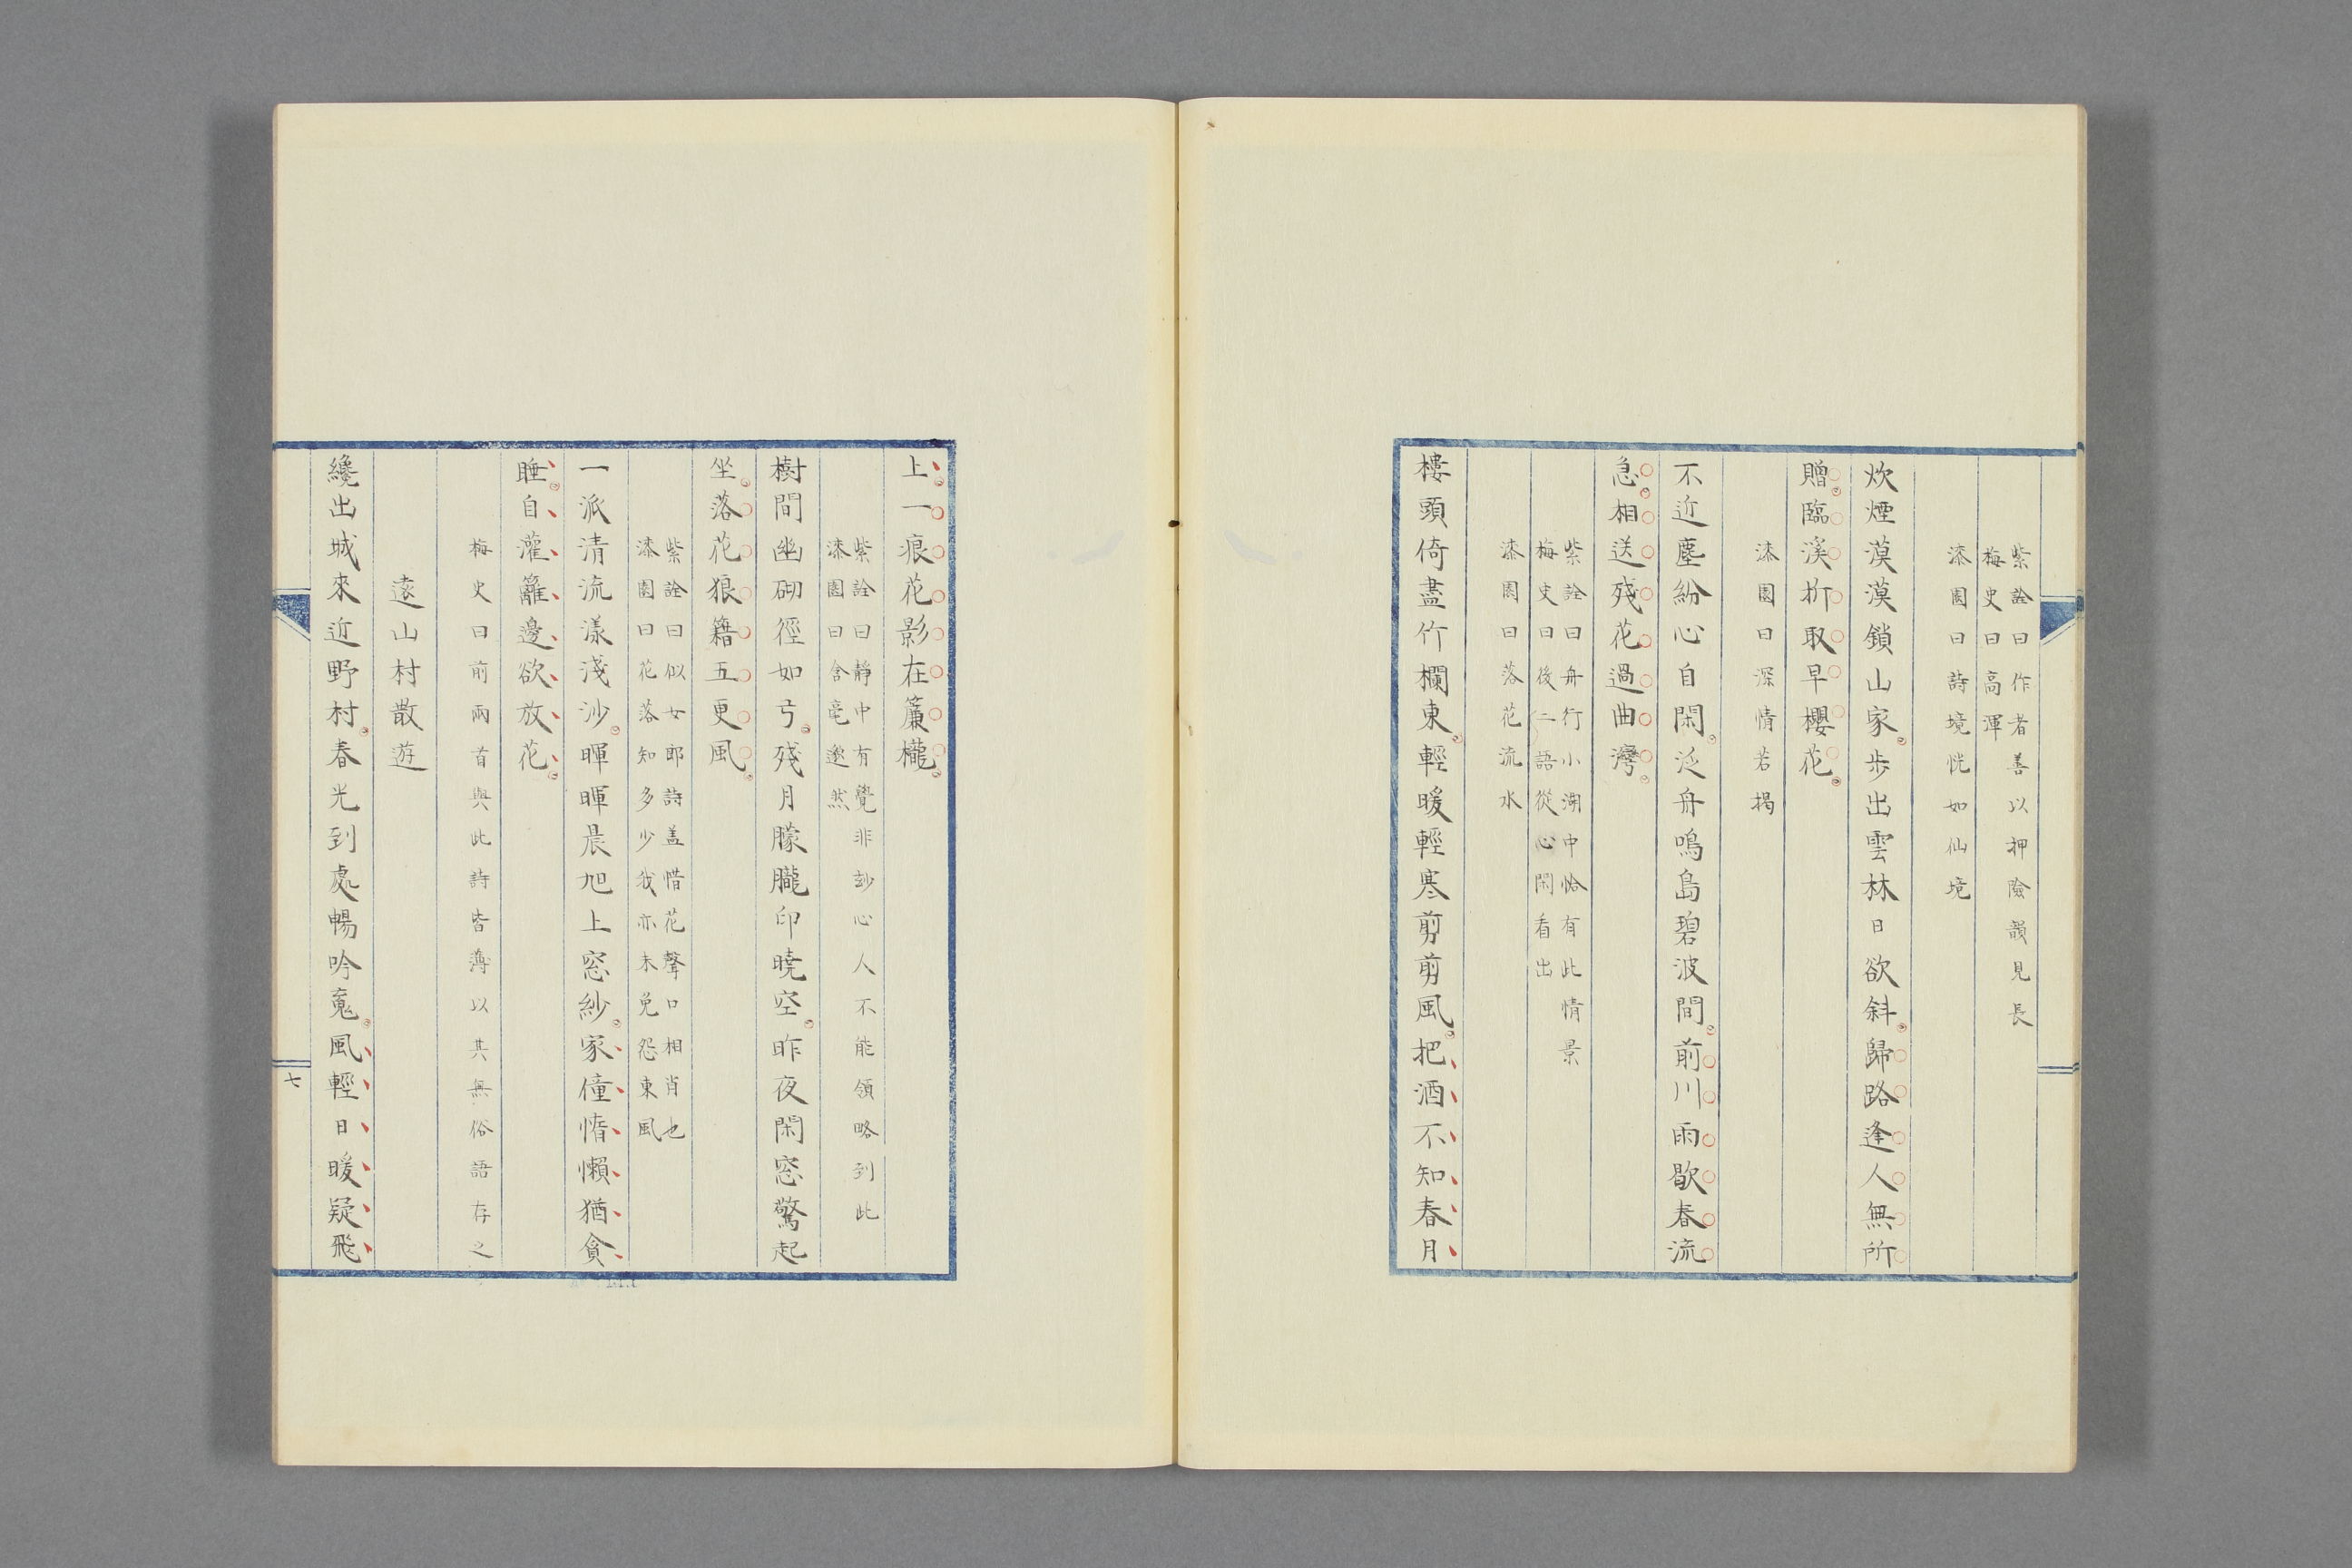 紫詮曰作者善以押險韻見長
梅史曰高渾
漆園曰詩境恍如仙境
炊煙漠漠鎖山家歩出雲林日欲斜歸路逢人無所
贈臨溪折取早櫻花
漆園曰深情若揭
不近塵紛心自閑泛舟鳴島碧波間前川雨歇春流
急相送殘花過曲灣
紫詮曰舟行小湖中恰有此情景
梅史曰後二語從心閑看出
漆園曰落花流水
樓頭倚盡竹欄東輕暖輕寒剪剪風把酒不知春月
上一痕花影在簾櫳
紫詮曰靜中有覺非玅心人不能領略到此
漆園曰含毫邈然
樹間幽砌徑如弓殘月朦朧印曉空昨夜閑窓驚起
坐落花狼籍五更風
紫詮曰似女郎詩盖惜花聲口相肖也
漆園曰花落知多少我亦未免怨東風
一派清流漾淺沙暉暉晨旭上窓紗家僮惰懶猶貪
睡自灌籬邊欲放花
梅史曰前兩首與此詩皆薄以其無俗語存之
遠山村散遊
纔出城來近野村春光到處暢吟䰟風輕日暖疑飛
七